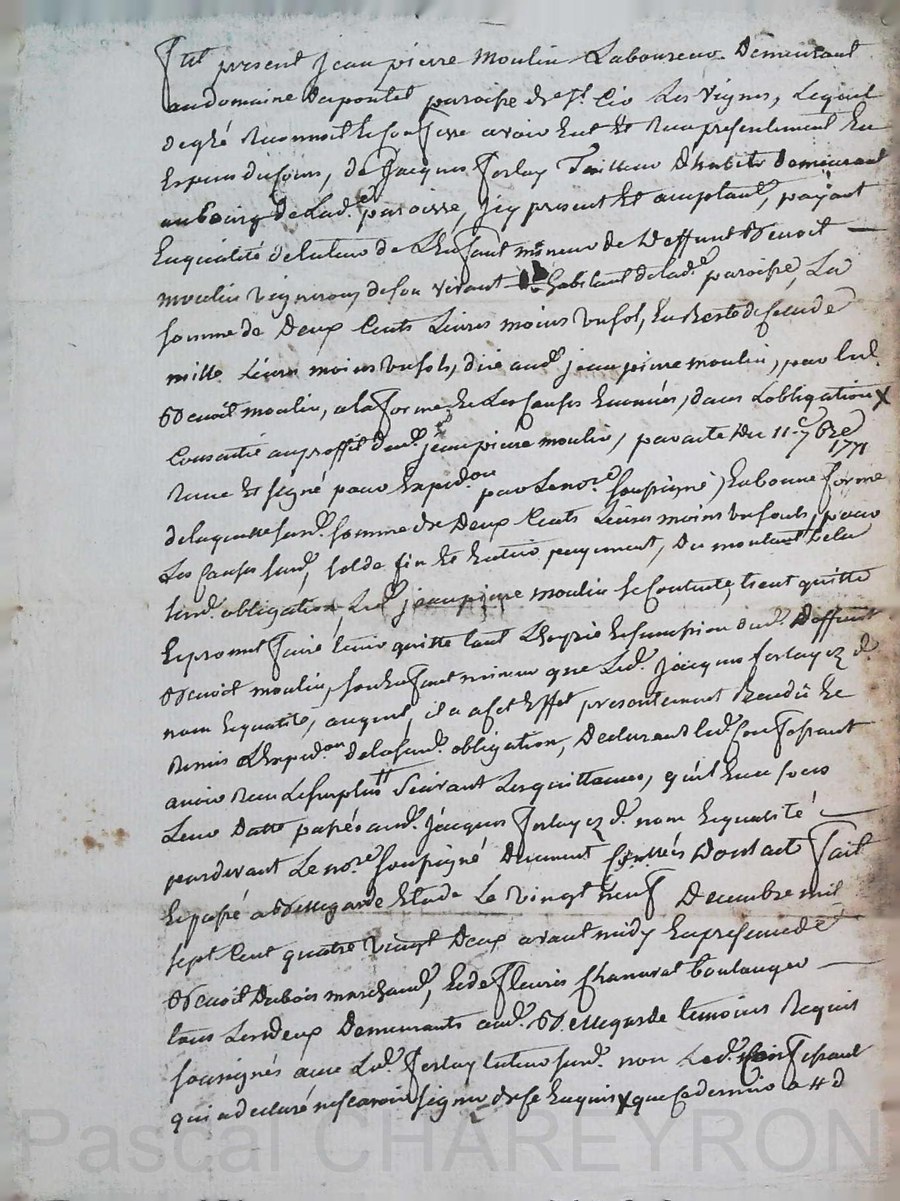 Fut présent jean pierre moulin Laboureur Demeurant
audomaine Dupontet paroisse de St. Cir Les vignes, Lequel
degré Reconnoit Confesse avoir Eut Et Receu présentement En
Espesses du Cours, de jacques forlay Tailleur D'habits demeurant
aubourg de Lad.e paroisse, jcy present Et acceptant, payant
Enqualité detuteur de L'Enfant mineur de Deffunt Benoit
moulin vigneron, deson vivant habitant delad.e paroisse, La
somme de Deux Cents Livres moins unsol, En Reste de Celle de
mille Livres moins unsols, düe aud. jean pierre moulin, par led.
Benoit moulin, ala forme Et Les Causes Enoncées, dans L'obligation X
Consantie auproffit dud. jean pierre moulin, paracte Du 11.e 7bre
1771
Receue Et signé pour Exped.on par Lenore. soussigné, En bonne forme
delaquelle susd. somme de Deux Cents Livres moins unsols, pour
Les Causes susd. solde fin Et Entier payement, Du montant Dela
susd. obligation, Led. jean pierre moulin se Contente, tient quitte
Et promet faire tenir quitte tant L'hoyrie Et succession dud. Deffunt
Benoit moulin, son Enfant mineur que Led. jacques forlay ez d.
nom Et qualité, auquel, il a a Cet Effet presentement Rendû Et
Remis L'Exped.on delasusd. obligation, Declarant led. Confessant
avoir Receu Lesurplus Suivant Les quittances, qu'il Ena sous
Leur Datte passés aud. jacques forlay ez d. nom Et qualité
pardevant Le nore. soussigné Duement Dont acte fait
Et passé a Bellegarde Etude Le vingt neuf Decembre mil
sept Cent quatre vingt Deux avant midy En presence de
Benoit Dubois marchand, Et de fleuris Chanavat boulanger
tous Lesdeux Demeurants aud. Bellegarde temoins Requis
soussignés avec Led. forlay tuteur susd. non Led. Confessant
qui adeclaré nesçavoir signer dece Enquis X que Cedernier a
Pascal CHAREYRON